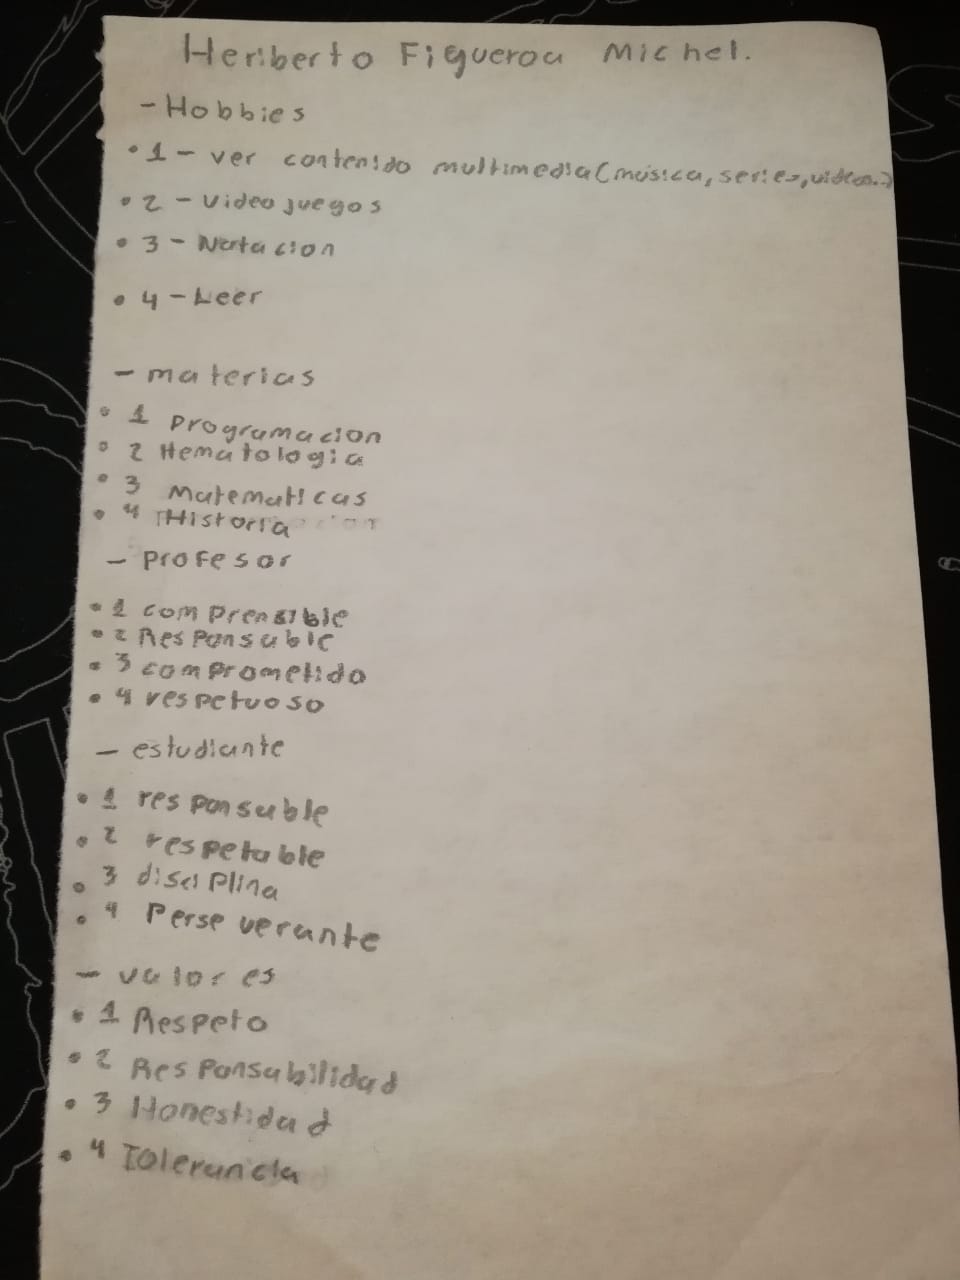 Heriberto Figueroa Michel.
- Hobbies
• 1 - ver contenido multimedia (música, series, videos.)
• 2 - videojuegos
• 3 - Natacion
• 4 - Leer
- materias
• 1 Programacion
• 2 Hematologia
• 3 Matematicas
• 4 Historia
- Profesor
• 1 comprensible
• 2 Responsable
• 3 comprometido
• 4 respetuoso
- estudiante
• 1 responsable
• 2 respetable
• 3 disciplina
• 4 Perseverante
- valores
• 1 Respeto
• 2 Responsabilidad
• 3 Honestidad
• 4 Tolerancia